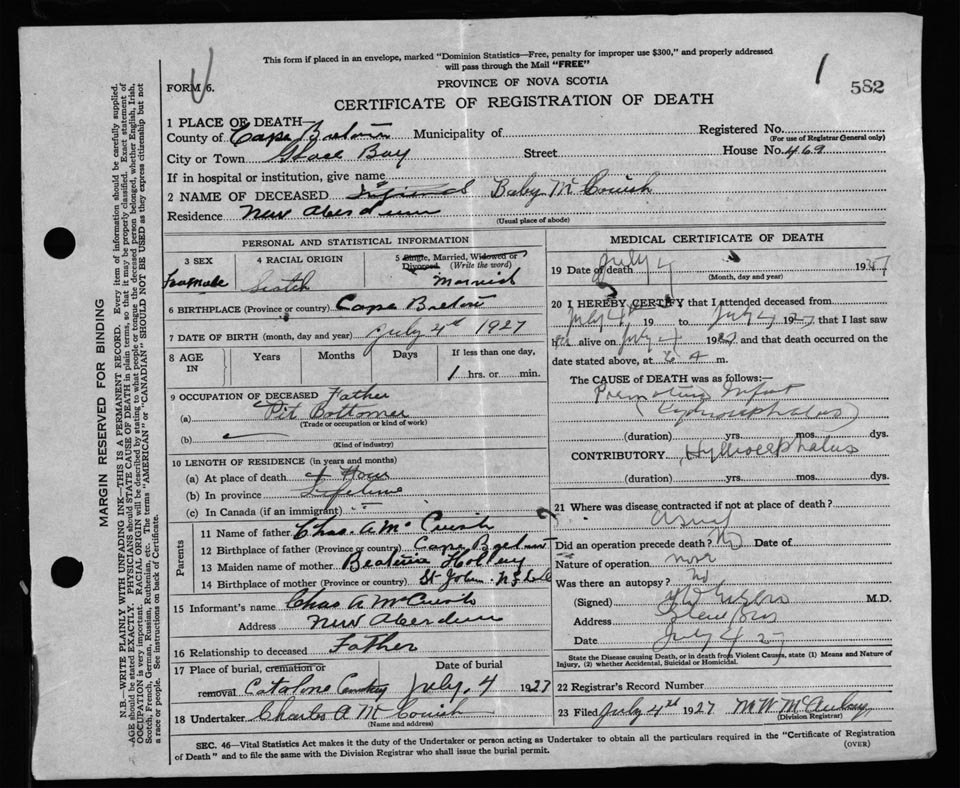 This form if placed in an envelope, marked "Dominion Statistics—Free, penalty for improper use $300," and properly addressed
will pass through the Mail "FREE"
1
582
FORM 6.
PROVINCE OF NOVA SCOTIA
CERTIFICATE OF REGISTRATION OF DEATH
1 PLACE OF DEATH—
County of Cape Breton Municipality of
Registered No.
(For use of Registrar General only)
City or Town Glace Bay Street House No. 469
If in hospital or institution, give name
2 NAME OF DECEASED Baby McCuish
Residence New Aberdeen
(Usual place of abode)
PERSONAL AND STATISTICAL INFORMATION
3 SEX
Female
4 RACIAL ORIGIN
Scotch
5 Single, Married, Widowed or
Divorced (Write the word)
Married
6 BIRTHPLACE (Province or country) Cape Breton
7 DATE OF BIRTH (month, day and year) July 4th 1927
8 AGE
IN
Years
Months
Days
If less than one day,
1 hrs. or min.
9 OCCUPATION OF DECEASED Father
(a) Pit Bottomer
(Trade or occupation or kind of work)
(b)
(Kind of industry)
10 LENGTH OF RESIDENCE (in years and months)
(a) At place of death Hour
(b) In province Lifetime
(c) In Canada (if an immigrant)
Parents
11 Name of father Chas. A McCuish
12 Birthplace of father (Province or country) Cape Breton
13 Maiden name of mother
14 Birthplace of mother (Province or country) St John
15 Informant's name Chas A McCuish
Address New Aberdeen
16 Relationship to deceased Father
17 Place of burial, cremation or
removal Catalone Cemetery
Date of burial
July, 4 1927
18 Undertaker Charles A McCuish
(Name and address)
MEDICAL CERTIFICATE OF DEATH
19 Date of death July 4 1927
(Month, day and year)
20 I HEREBY CERTIFY that I attended deceased from
July 4, 19 to July 4 1927 that I last saw
her alive on July 4 1927, and that death occurred on the
date stated above, at 6 a m.
The CAUSE of DEATH was as follows:
Premature Infant
(duration) yrs. mos. dys.
CONTRIBUTORY Hydrocephalus
(duration) yrs. mos. dys.
21 Where was disease contracted if not at place of death?
Did an operation precede death? No Date of
Nature of operation
Was there an autopsy? no
(Signed) M.D.
Address
Date July 4 27
State the Disease causing Death, or in death from Violent Causes, state (1) Means and Nature of
Injury, (2) whether Accidental, Suicidal or Homicidal.
22 Registrar's Record Number
23 Filed July 4th 1927 M W McAulay
(Division Registrar)
SEC. 46—Vital Statistics Act makes it the duty of the Undertaker or person acting as Undertaker to obtain all the particulars required in the "Certificate of Registration
of Death" and to file the same with the Division Registrar who shall issue the burial permit.
(OVER)
MARGIN RESERVED FOR BINDING
N.B.—WRITE PLAINLY WITH UNFADING INK—THIS IS A PERMANENT RECORD. Every item of information should be carefully supplied.
AGE should be stated EXACTLY. PHYSICIANS should STATE CAUSE OF DEATH in plain terms, so that it may be properly classified. Exact statement of
OCCUPATION is very important. RACIAL ORIGIN will be described by stating to what people or tongue the deceased person belonged, whether English, Irish,
Scotch, French, German, Russian, Ruthenian, etc. The terms "AMERICAN" or "CANADIAN" SHOULD NOT BE USED as they express citizenship but not
a race or people. See instructions on back of Certificate.